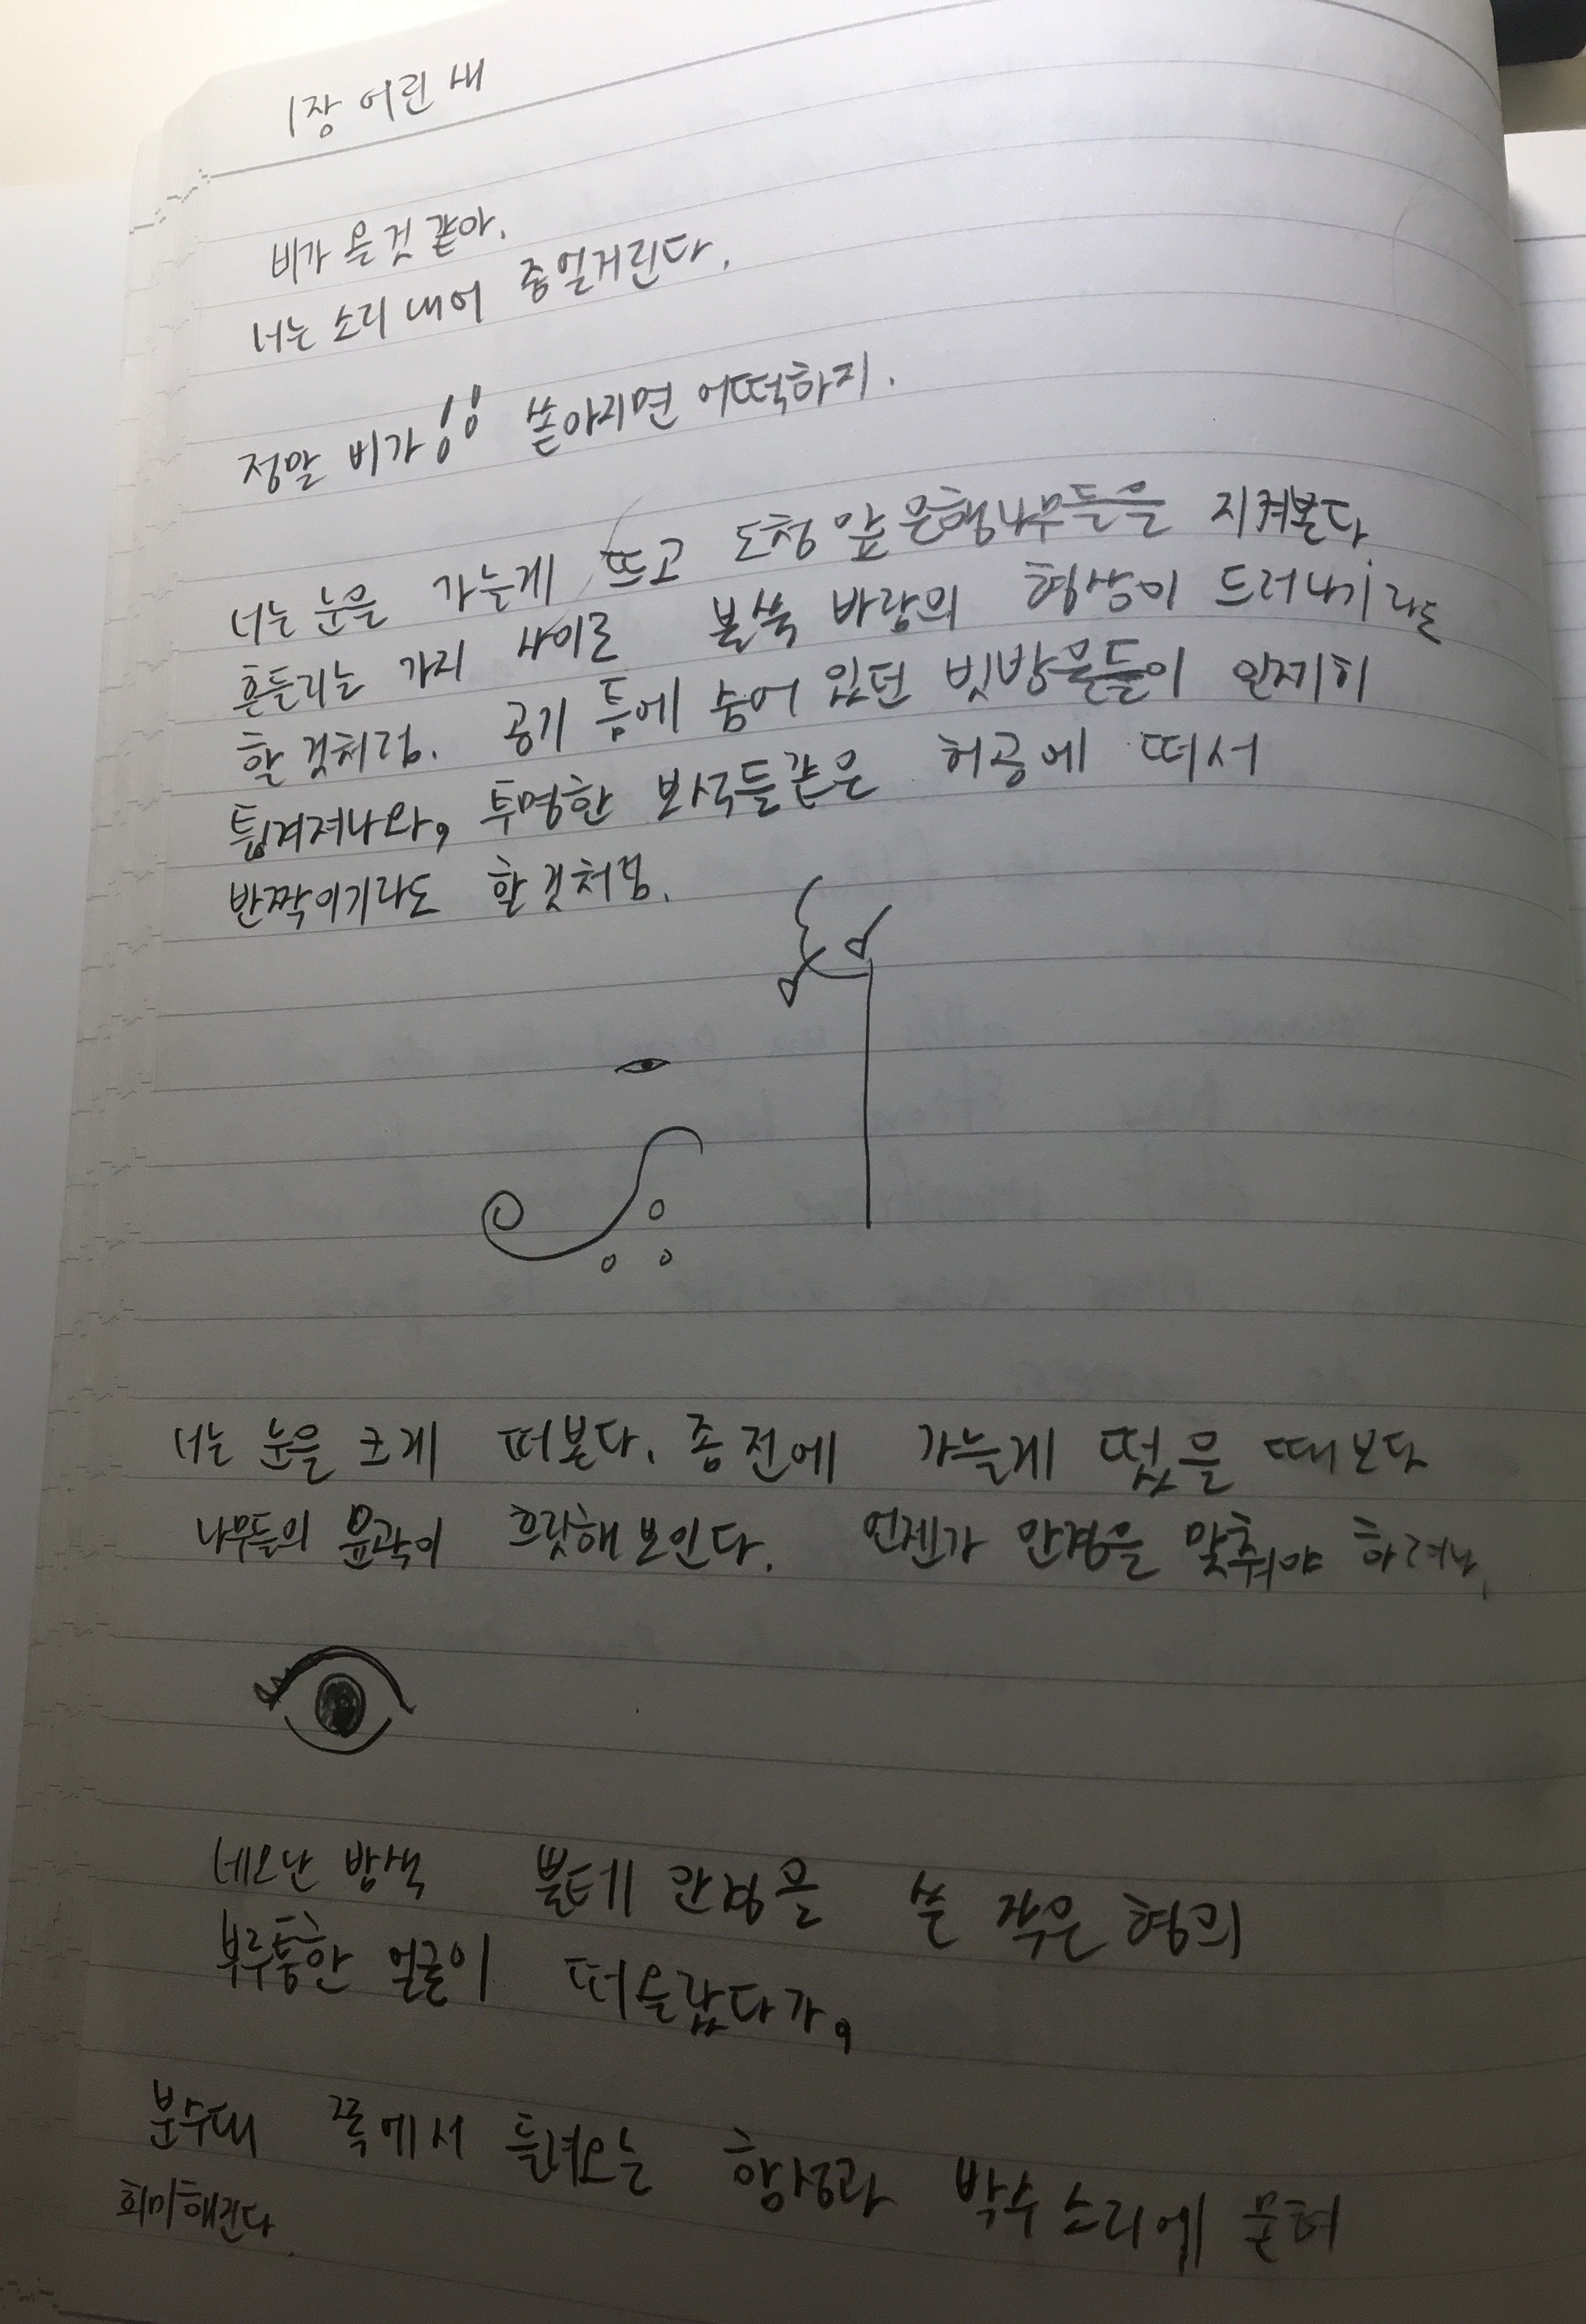 1장 어린 새
비가 올 것 같아.
너는 소리 내어 중얼거린다.
정말 비가 쏟아지면 어떡하지.
너는 눈을 가늘게 뜨고 도청 앞 은행나무들을 지켜본다.
흔들리는 가지 사이로 불쑥 바람의 형상이 드러나기라도
할 것처럼. 공기 틈에 숨어 있던 빗방울들이 일제히
튕겨져나와, 투명한 보석들같은 허공에 떠서
반짝이기라도 할 것처럼.
너는 눈을 크게 떠본다. 좀 전에 가늘게 떴을 때보다
나무들의 윤곽이 흐릿해 보인다. 언젠가 안경을 맞춰야 하려나.
네모난 밤색 뿔테 안경을 쓴 작은형의
부루퉁한 얼굴이 떠올랐다가,
분수대 쪽에서 들려오는 함성과 박수소리에 묻혀
희미해진다.